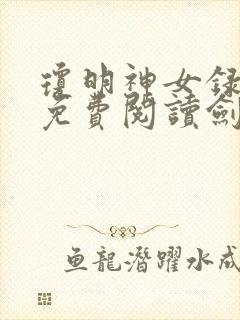 瓊明神女録
免費閱讀劍
鱼龍潛躍水成